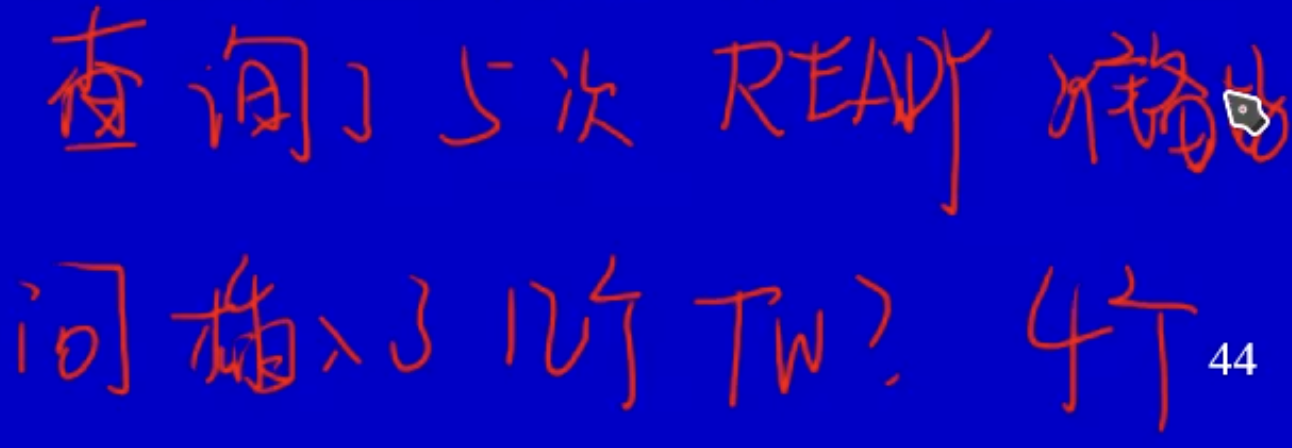 查询了5次 READY 准备好
问插入了几个 TW? 4个
44